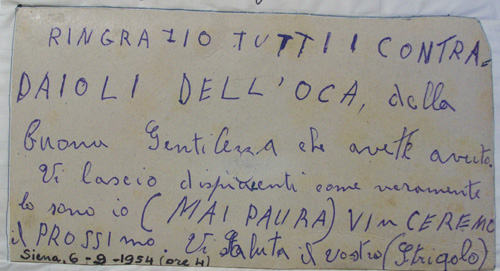 RINGRAZIO TUTTI I CONTRA=
DAIOLI DELL'OCA, della
buona Gentilezza che avete avuto.
Vi lascio dispiacenti come veramente
lo sono io (MAI PAURA) VINCEREMO
il PROSSIMO. Vi Saluta il vostro (Strigolo)
Siena, 6-9-1954 (ore 4)